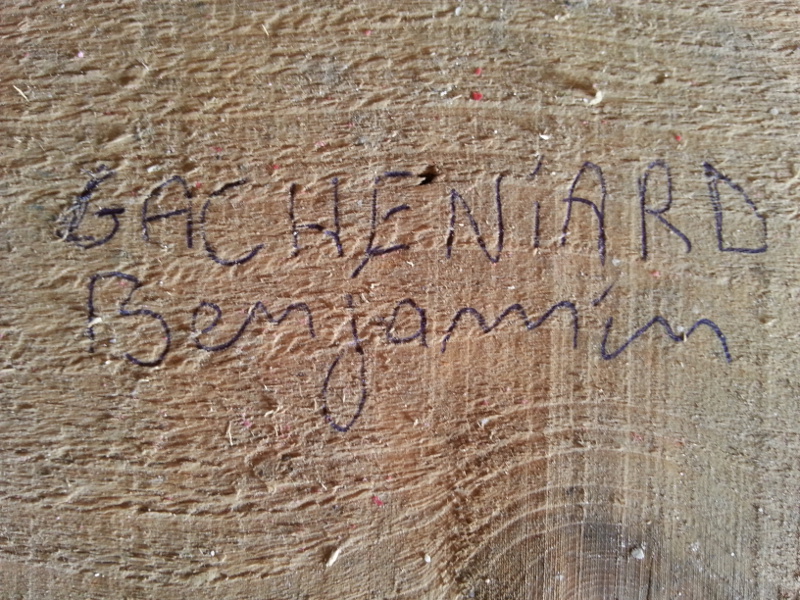 GACHENiARD
Benjamin